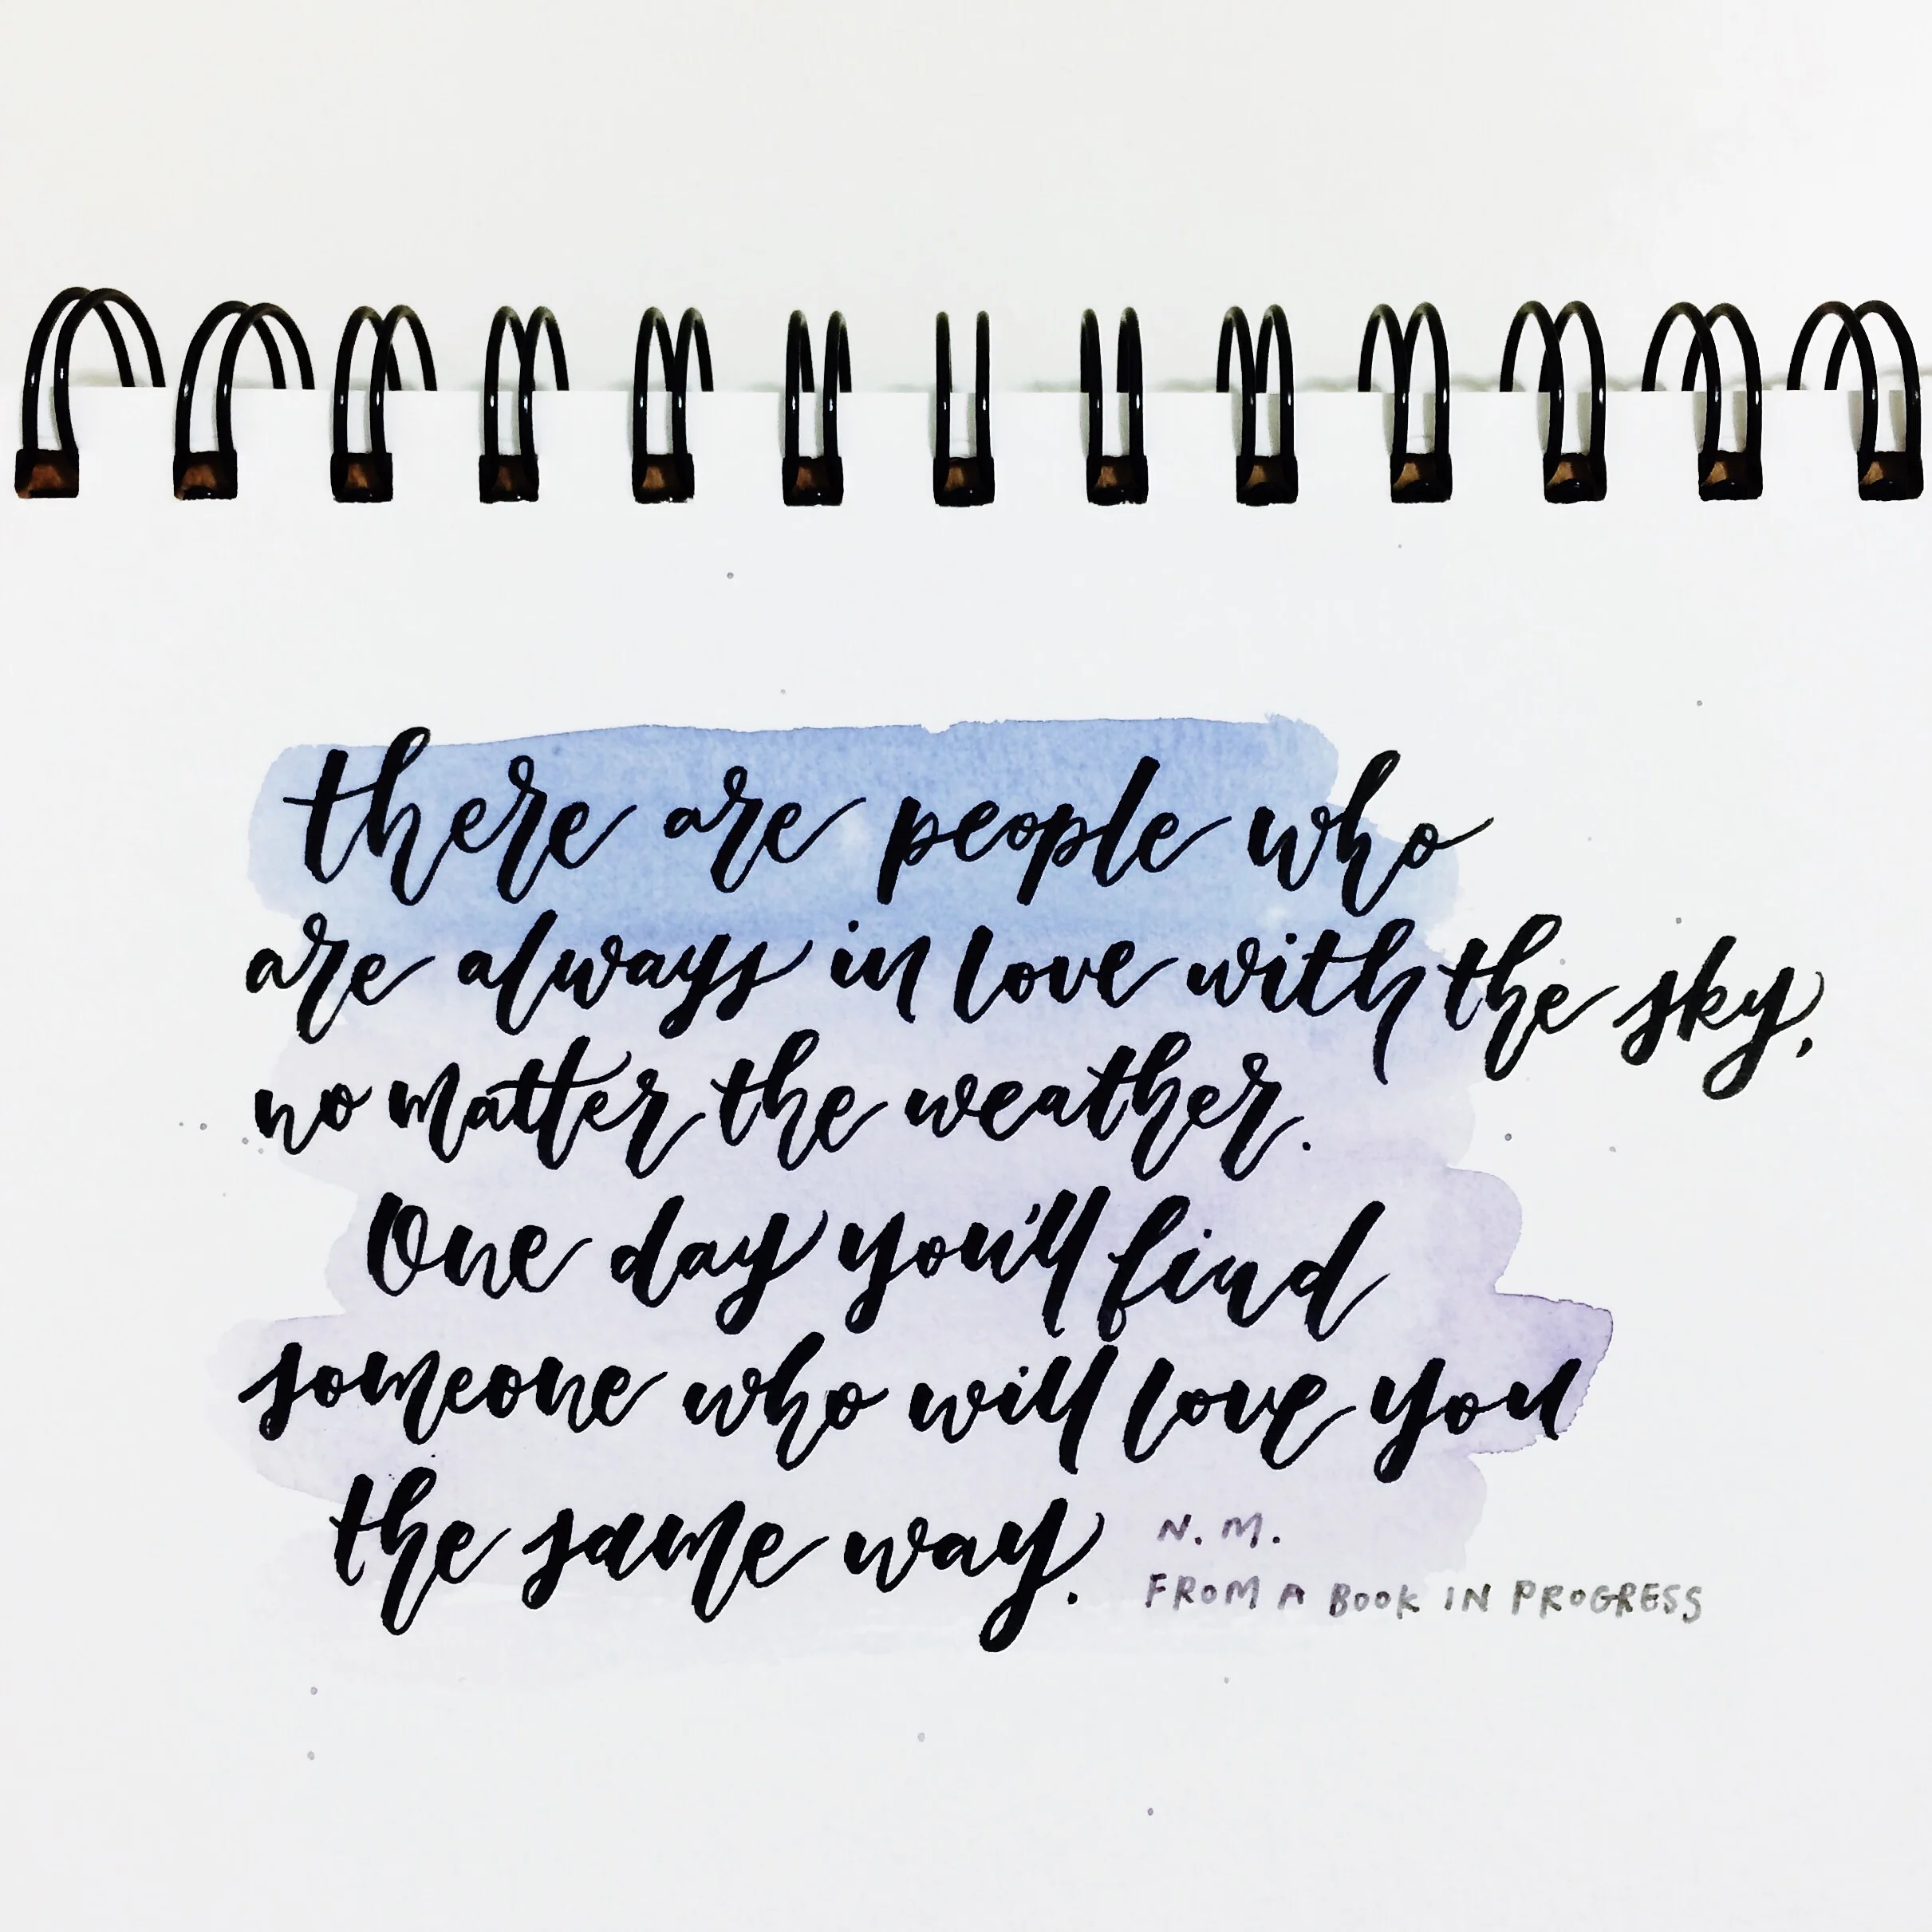 there are people who
are always in love with the sky,
no matter the weather.
One day you'll find
someone who will love you
the same way.
N. M.
FROM A BOOK IN PROGRESS